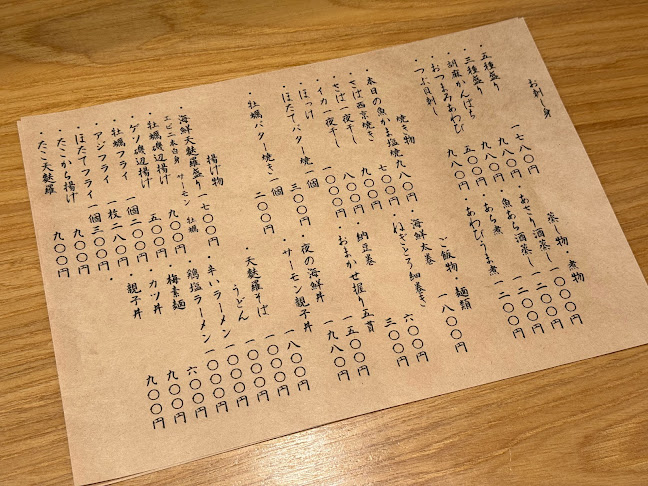 お刺し身
・五種盛り 一七八〇円
・三種盛り 九八〇円
・胡麻かんぱち 九八〇円
・おつまみあわび 五〇〇円
・つぶ貝刺し 九八〇円
焼き物
・本日の魚かま塩焼 九八〇円
・さば西京焼き 七〇〇円
・さば一夜干し 八〇〇円
・イカ一夜干し 九〇〇円
・ほっけ
・ほたてバター焼 一個 三〇〇円
・牡蠣バター焼き 一個 二〇〇円
揚げ物
・海鮮天麩羅盛り 一七〇〇円
エビ二本白身 サーモン 牡蠣
・牡蠣磯辺揚げ 九〇〇円
・ゲソ磯辺揚げ 五〇〇円
・牡蠣フライ 一個二〇〇円
・アジフライ 一枚二八〇円
・ほたてフライ 一個三〇〇円
・たこから揚げ 九〇〇円
・たこ天麩羅 九〇〇円
蒸し物・煮物
・あさり酒蒸し 一〇〇〇円
・魚あら酒蒸し 一二〇〇円
・あら煮 一二〇〇円
・あわびうま煮 一二〇〇円
ご飯物 麺類
・海鮮太巻 一八〇〇円
・ねぎとろ細巻き 六〇〇円
・納豆巻 三〇〇円
・おまかせ握り五貫 一五〇〇円
・夜の海鮮丼 一九八〇円
・サーモン親子丼 一八〇〇円
・天麩羅そば 一〇〇〇円
うどん 一〇〇〇円
・辛いラーメン 一〇〇〇円
・鶏塩ラーメン 一〇〇〇円
・梅素麺 六〇〇円
・カツ丼 九〇〇円
・親子丼 九〇〇円